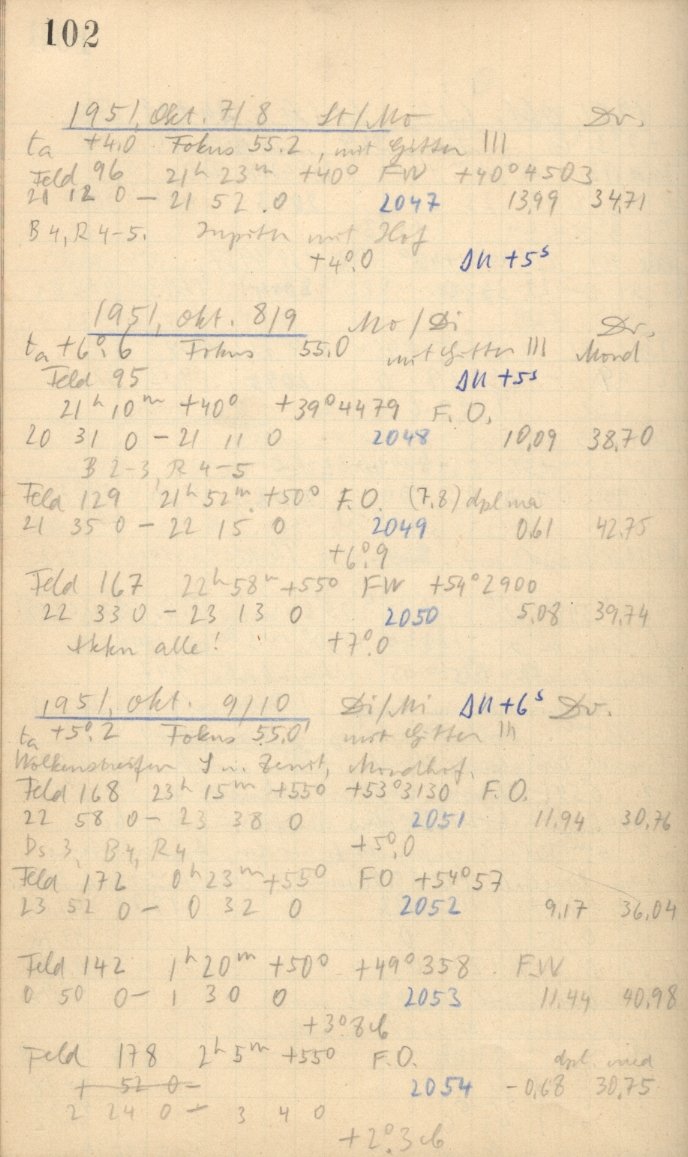 102
1951, Okt. 7/8 St/Mo Dr.
ta +4.0 Fokus 55.2, mit Gitter III
Feld 96 21h 23m +40° FW +40°4503
21 12 0 – 21 52.0 2047 13,99 34,71
B 4, R 4-5. Jupiter mit Hof
+4°.0 Δu +5s
1951, Okt. 8/9 Mo/Di Dr.
ta +6°.6 Fokus 55.0 mit Gitter III Mond
Feld 95 Δu +5s
21h 10m +40° +39°4479 F.O.
20 31 0 – 21 11 0 2048 10,09 38,70
B 2-3, R 4-5
Feld 129 21h 52m +50° F.O. (7,8) dpl
21 35 0 – 22 15 0 2049 0,61 42,75
+6°.9
Feld 167 22h 58m +55° FW +54°2900
22 33 0 – 23 13 0 2050 5,08 39,74
alle! +7°.0
1951, Okt. 9/10 Di/Mi Δu +6s Dr.
ta +5°.2 Fokus 55.0 mit Gitter III
Wolkenstreifen S u. Zenit, Mondhof.
Feld 168 23h 15m +55° +53°3130 F.O.
22 58 0 – 23 38 0 2051 11,94 30,76
Ds 3, B4, R4 +5°.0
Feld 172 0h 23m +55° FO +54°57
23 52 0 – 0 32 0 2052 9,17 36,04
Feld 142 1h 20m +50° +49°358 FW
0 50 0 – 1 30 0 2053 11,44 40,98
+3°.8
Feld 178 2h 5m +55° F.O. dpl. med
1 52 0 – 2054 -0,68 30,75
2 24 0 – 3 4 0
+2°.3